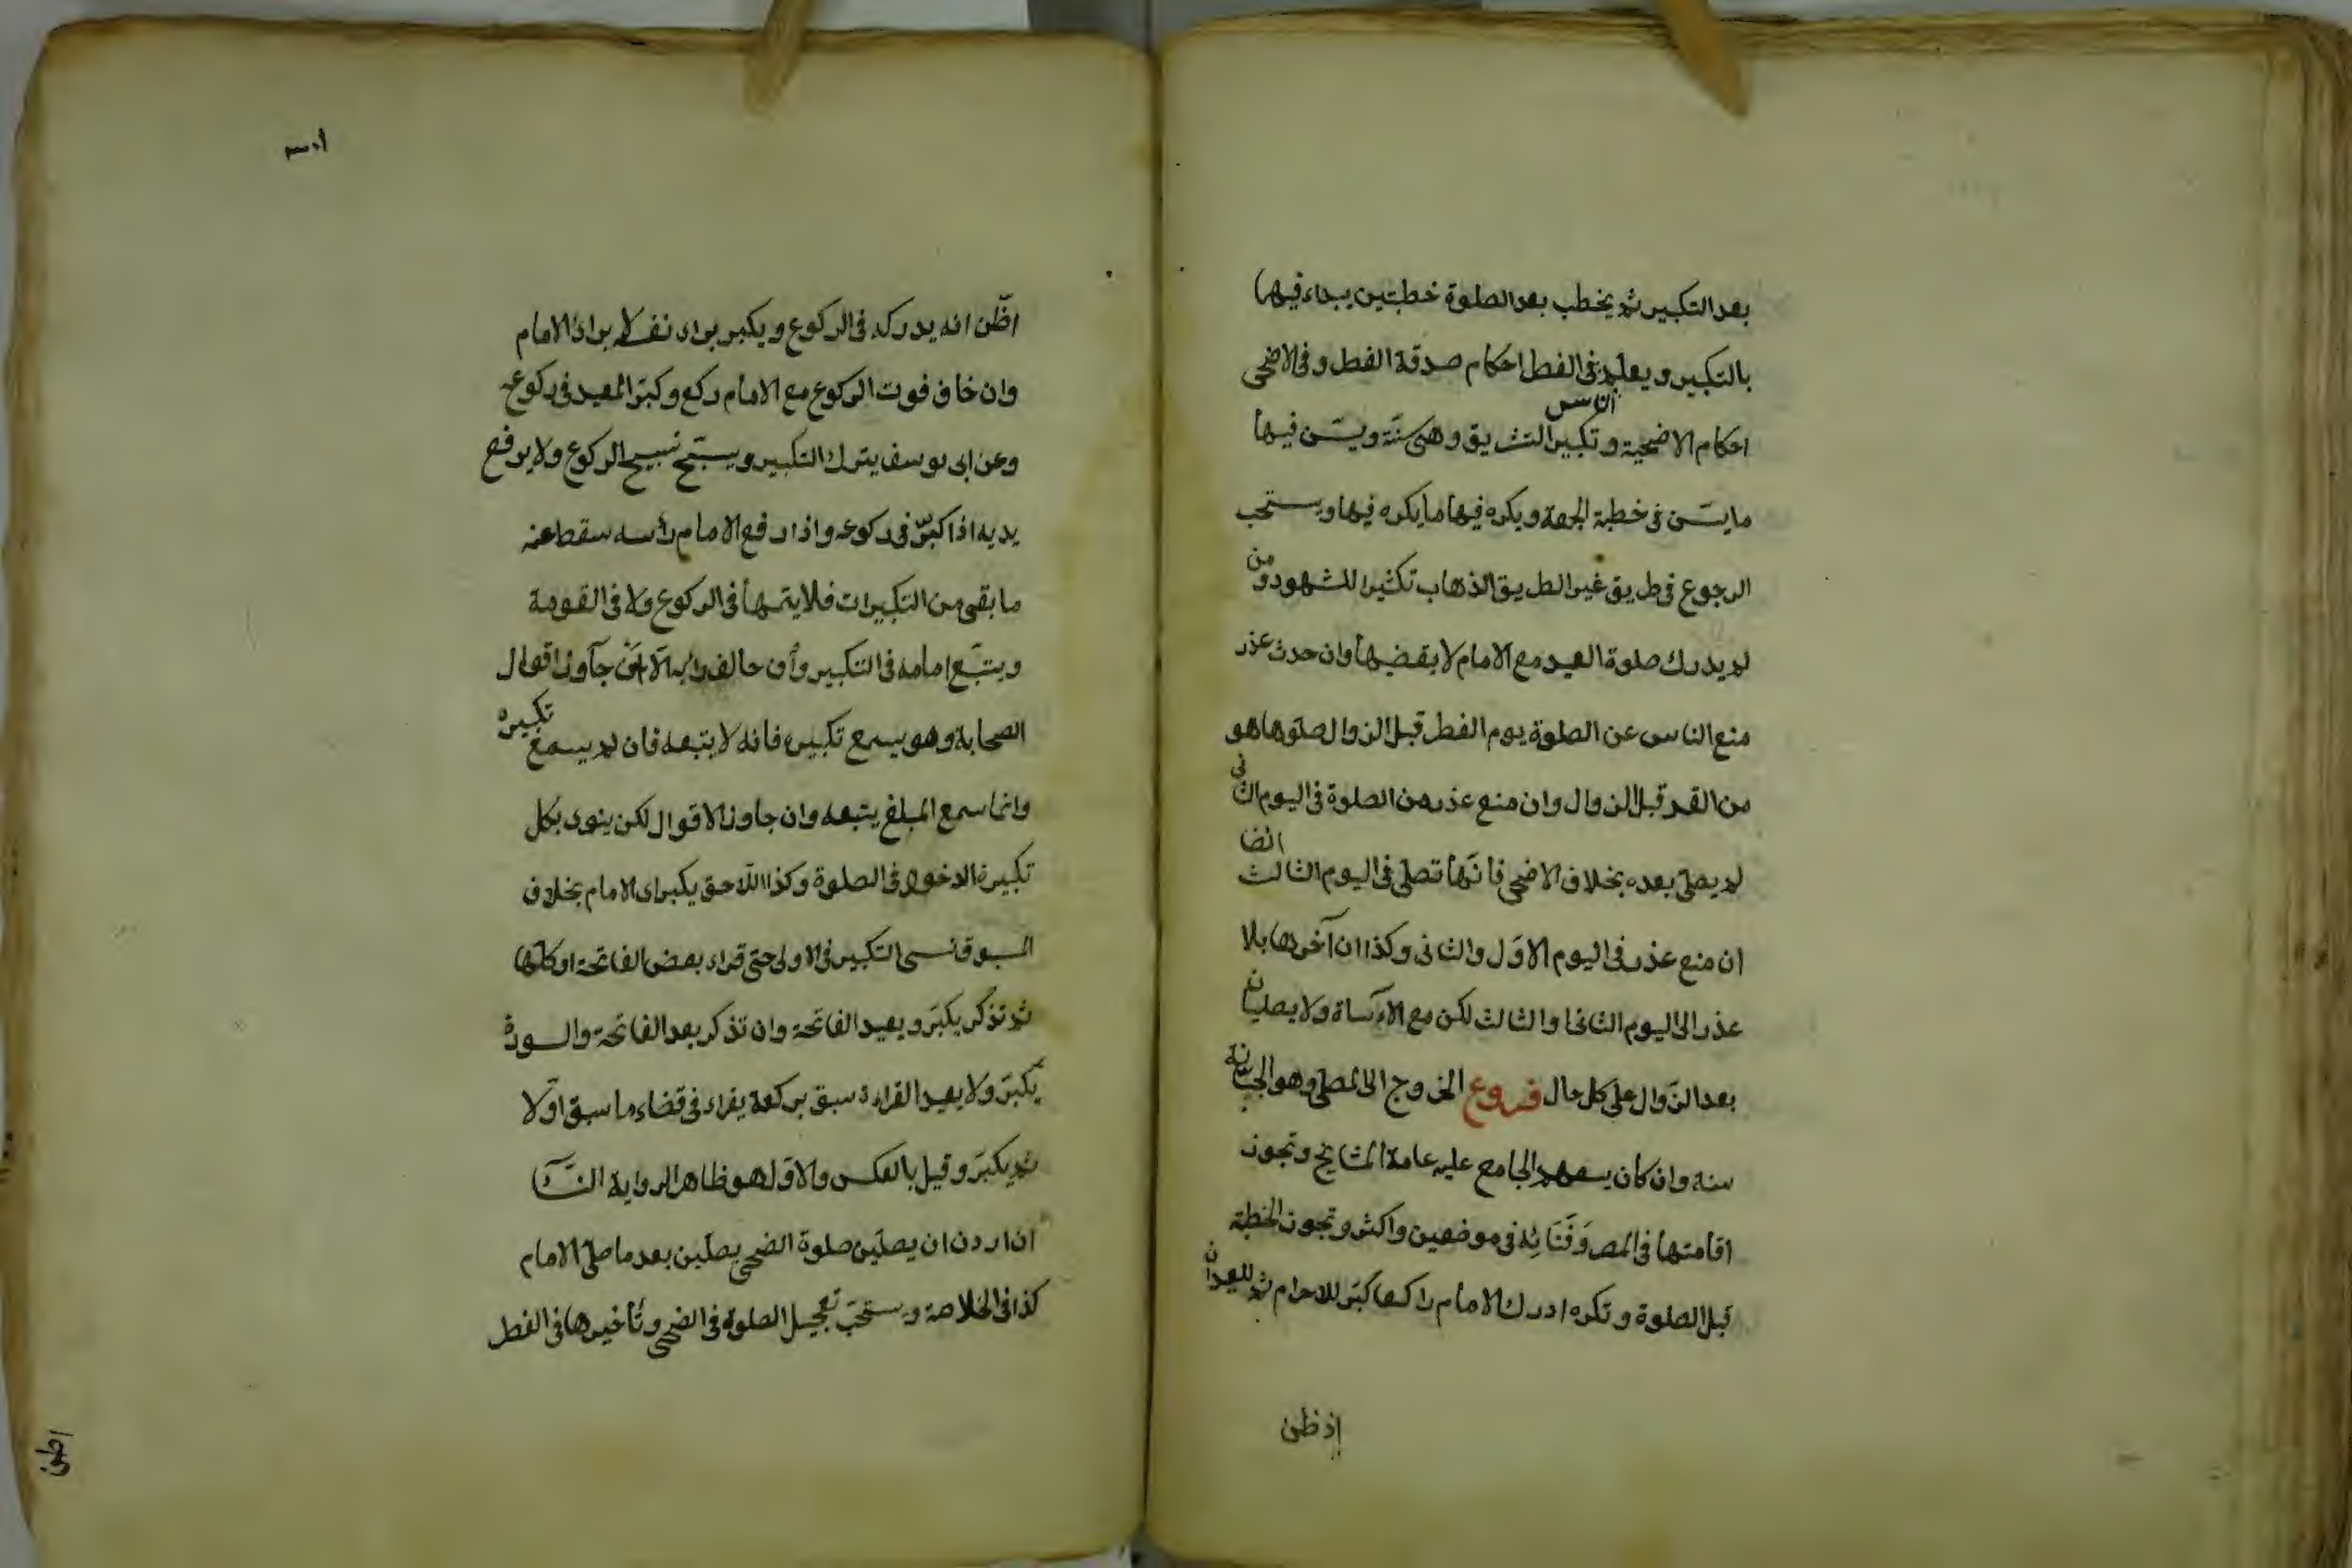 بعد التكبير ثم يخطب بعد الصلوة خطبتين يبداء فيها
بالتكبير ويعلم فى الفطر احكام صدقة الفطر وفى الاضحى
احكام الاضحية وتكبير التشريق وهى سنّة ويسّن فيها
ما يسّن فى خطبة الجمعة ويكره فيها ما يكره فيها ويستحب
الرجوع فى طريق غير الطريق الذهاب تكثيرا للشهود ومن
لم يدرك صلوة العيد مع الامام لا يقضيها وان حدث عذر
منع الناس عن الصلوة يوم الفطر قبل الزوال صلوها هو
من الغد قبل الزوال وان منع عذر من الصلوة فى اليوم الثانى
لم يصلى بعده بخلاف الاضحى فانها تصلى فى اليوم الثالث ايضا
ان منع عذر فى اليوم الاوّل والثانى وكذا ان آخرها بلا
عذر الى اليوم الثانى والثالث لكن مع الاسآة ولا يصليان
بعد الزّوال على كل حال فروع الخروج الى المصلى وهو الجبّانة
سنة وان كان يسعهم الجامع عليه عامة المشايخ وتجوز
اقامتها فى المصر وفَنَائِه فى موضعين واكثر وتجوز الخطبة
قبل الصلوة وتكره ادرك الامام راكعا كبّر للاحرام ثم للعيد ان
إذ ظن
اظّن انه يدركه فى الركوع ويكبر براى نفسه لا براى الامام
وان خاف فوت الركوع مع الامام ركع وكبّر العيد فى ركوع
وعن ابى يوسف يترك التكبير ويسبّح تسبيح الركوع ولا يرفع
يديه اذا كبّر فى ركوعه واذا رفع الامام رأسه سقط عنه
ما بقى من التكبيرات فلا يتمها فى الركوع ولا فى القومة
ويتبّع امامه فى التكبير وأن خالف رايه الّا ان جآوز اقوال
الصحابة وهو يسمع تكبيره فانه لا يتبعه فان لم يسمع تكبيره
وانما سمع المبلغ يتبعه وان جاوز الاقوال لكن ينوى بكل
تكبيرة الدخول فى الصلوة وكذا اللّاحق يكبر راى الامام بخلاف
المسبوق نسى التكبير فى الاولى حتى قراء بعض الفاتحة او كلّها
ثم تذكر يكبّر ويعيد الفاتحة وان تذكر بعد الفاتحة والسورة
يكبّر ولا يعيد القراءة سبق بركعة يقراء فى قضاء ما سبق اوّلا
ثم يكبّر وقيل بالعكس والاوّل هو ظاهر الرواية النسآ
ان اردن ان يصلّين صلوة الضحى يصلّين بعد ما صلى الامام
كذا فى الخلاصة ويستحبّ تعجيل الصلوة فى الضحى وتأخيرها فى الفطر